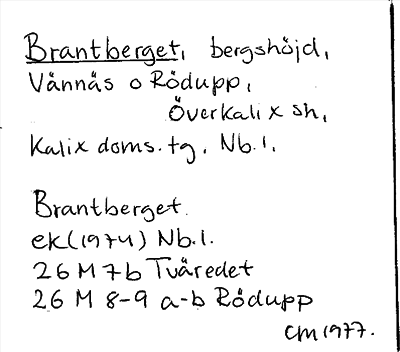 Brantberget, bergshöjd,
Vännäs o Rödupp,
Överkalix sn,
Kalix doms.tg, Nb.l.
Brantberget.
ek(1974) Nb.l.
26 M 7b Tväredet
26 M 8-9 a-b Rödupp
CM 1977.